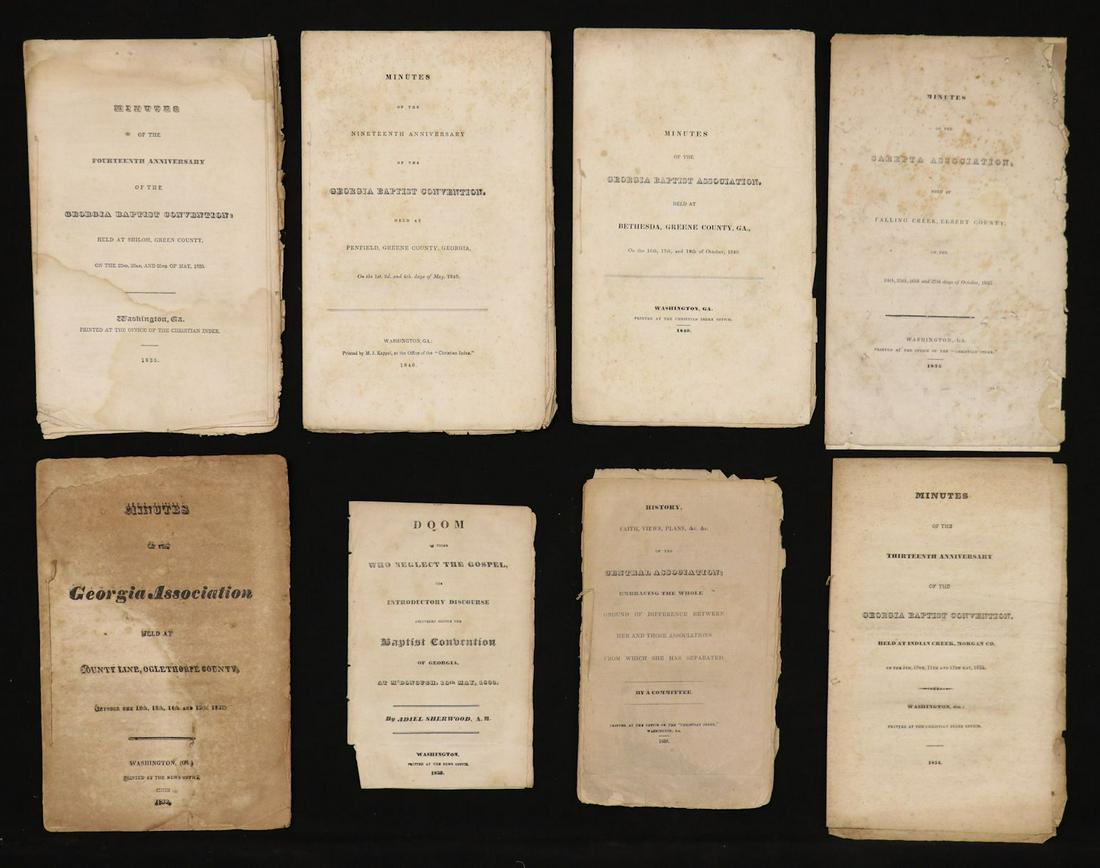 MINUTES
OF THE
FOURTEENTH ANNIVERSARY
OF THE
GEORGIA BAPTIST CONVENTION:
HELD AT SHILOH, GREEN COUNTY,
AND OF MAY, 1835.
Washington, Ga.
PRINTED AT THE OFFICE OF THE CHRISTIAN INDEX.
1835.
MINUTES
OF THE
NINETEENTH ANNIVERSARY
OF THE
GEORGIA BAPTIST CONVENTION,
HELD AT
PENFIELD, GREENE COUNTY, GEORGIA,
On the 1st, and 4th. days of May, 1840.
WASHINGTON, GA:
Printed by M. J. Kappel, at the Office of the "Christian Index."
1840.
MINUTES
OF THE
GEORGIA BAPTIST ASSOCIATION,
HELD AT
BETHESDA, GREENE COUNTY, GA.,
On the 16th, 17th, and 18th of October, 1840
WASHINGTON, GA.
PRINTED AT THE CHRISTIAN INDEX OFFICE.
1840.
MINUTES
OF THE
SAREPTA ASSOCIATION,
HELD AT
FALLING CREEK, ELBERT COUNTY,
ON THE
24th, 25th, 26th and 27th days of October,
WASHINGTON, GA.
PRINTED AT THE OFFICE OF THE "CHRISTIAN INDEX."
MINUTES
OF THE
Georgia Association
HELD AT
COUNTY LINE, OGLETHORPE COUNTY,
OCTOBER THE 14th AND
WASHINGTON, (GA.)
PRINTED AT THE NEWS OFFICE
DOOM
OF THOSE
WHO NEGLECT THE GOSPEL,
THE
INTRODUCTORY DISCOURSE
DELIVERED BEFORE THE
Baptist Convention
OF GEORGIA,
AT M'DONOUGH, MAY,
By ADIEL SHERWOOD, A. M.
WASHINGTON,
PRINTED AT THE NEWS OFFICE.
HISTORY,
FAITH, VIEWS, PLANS, &c. &c.
OF THE
CENTRAL ASSOCIATION;
EMBRACING THE WHOLE
GROUND OF DIFFERENCE BETWEEN
HER AND THOSE ASSOCIATIONS
FROM WHICH SHE HAS SEPARATED.
BY A COMMITTEE.
PRINTED AT THE OFFICE OF THE "CHRISTIAN INDEX,"
WASHINGTON, GA.
MINUTES
OF THE
THIRTEENTH ANNIVERSARY
OF THE
GEORGIA BAPTIST CONVENTION,
HELD AT INDIAN CREEK, MORGAN CO.
ON THE 11TH AND 12TH MAY, 1834.
WASHINGTON, (GA.)
PRINTED AT THE CHRISTIAN INDEX OFFICE.
1834.